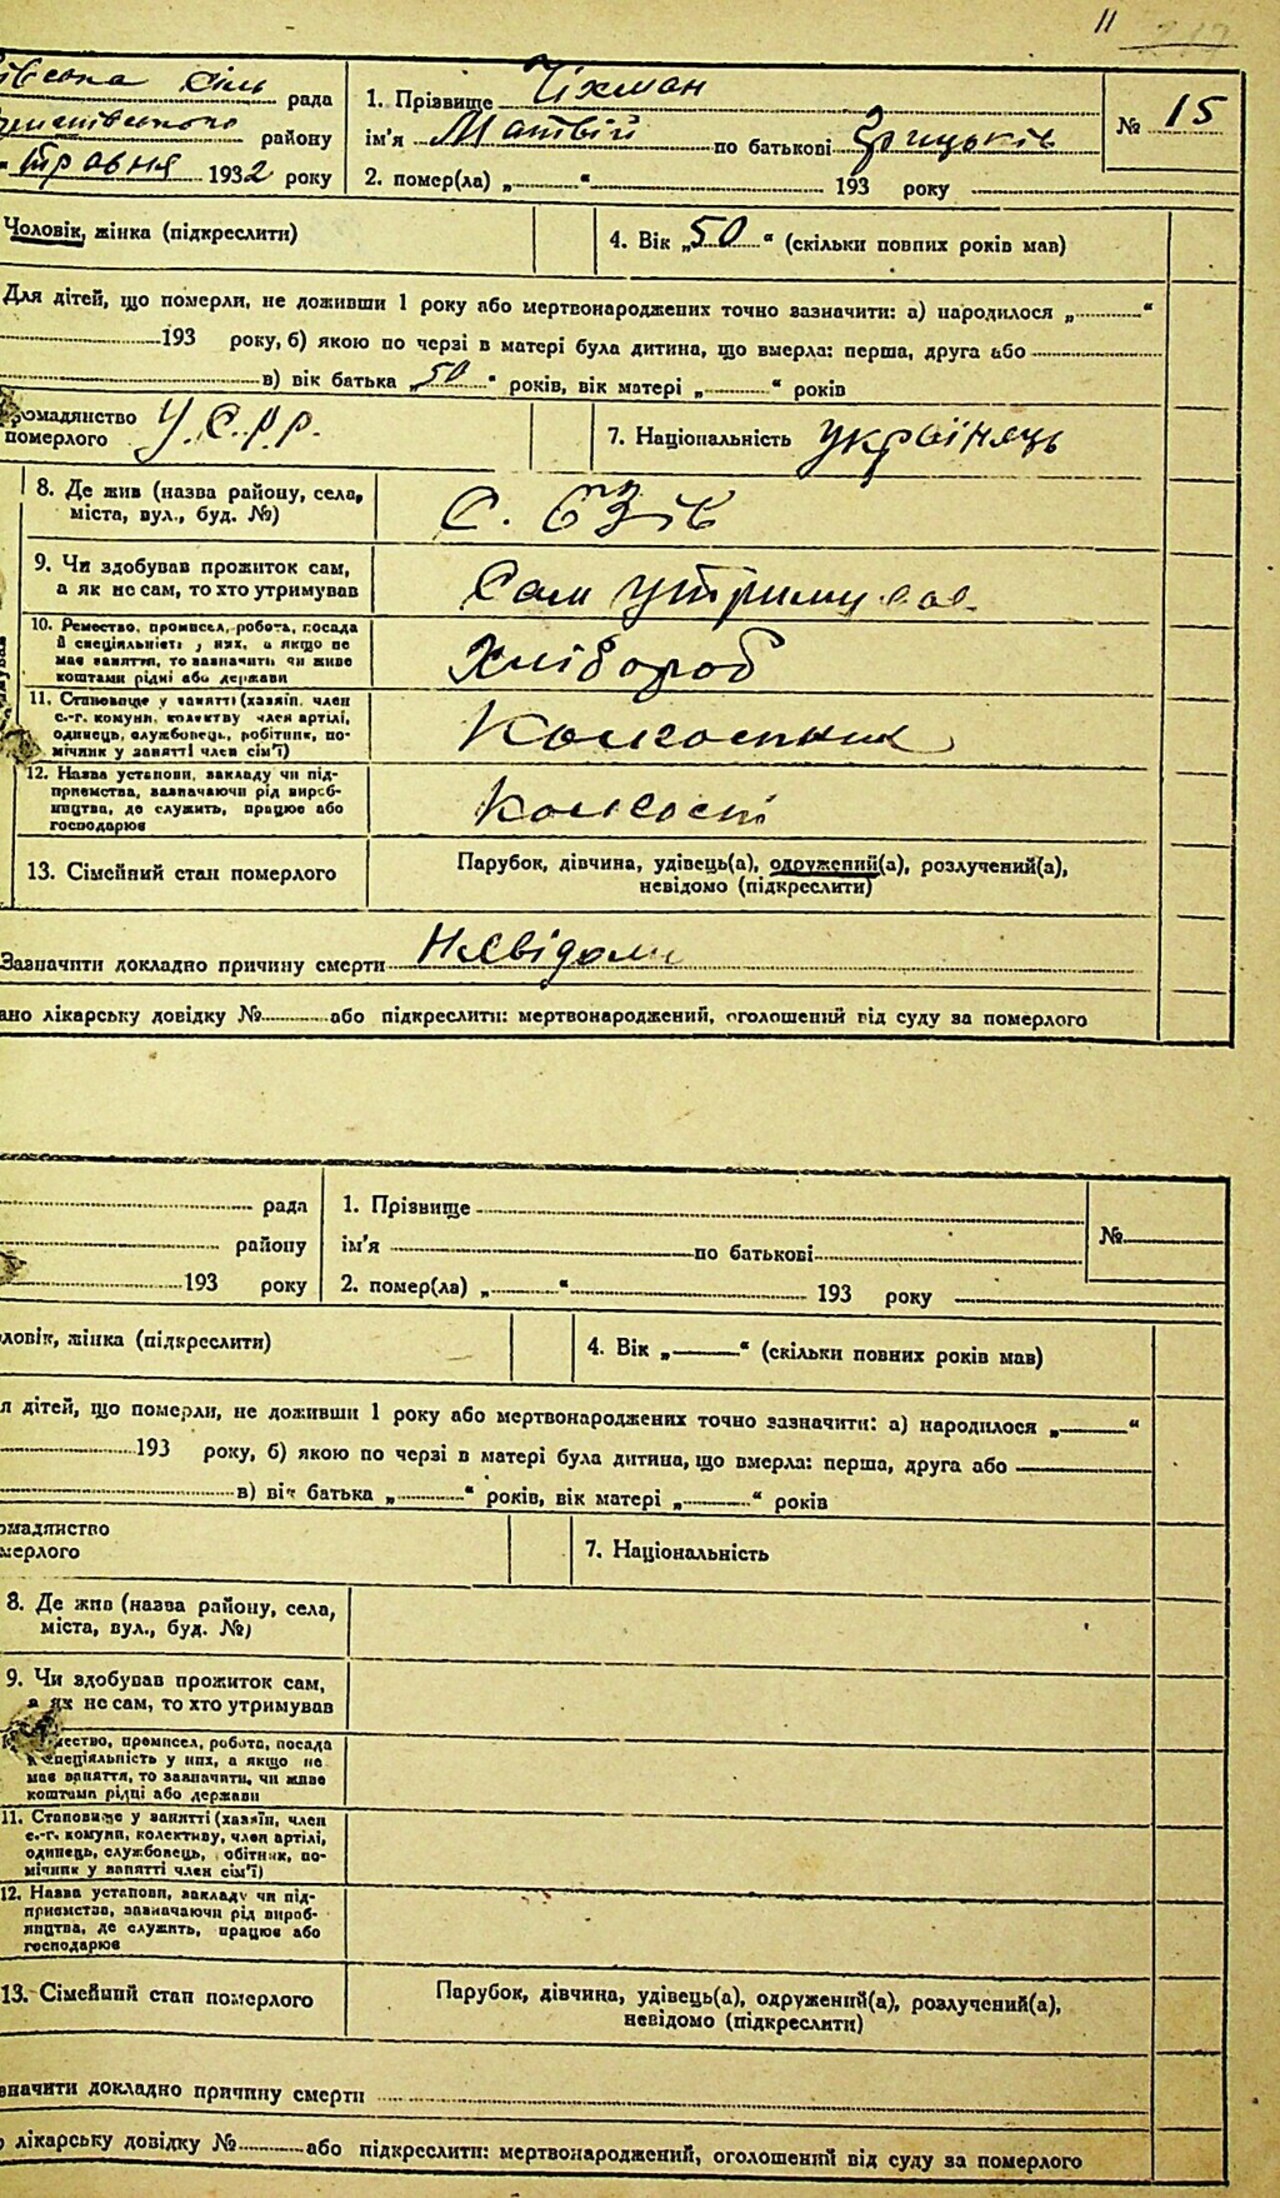 11
рада
1. Прізвище Тіхман
№ 15
району
ім'я Матвій по батькові Грицьків
травня 1932 року
2. помер(ла) „ “ 193 року
Чоловік, жінка (підкреслити)
4. Вік „50“ (скільки повних років мав)
Для дітей, що померли, не доживши 1 року або мертвонароджених точно зазначити: а) народилося „ “
193 року, б) якою по черзі в матері була дитина, що вмерла: перша, друга або
в) вік батька „50“ років, вік матері „ “ років
ромадянство
померлого
У.С.Р.Р.
7. Національність українець
8. Де жив (назва району, села,
міста, вул., буд. №)
С.
9. Чи здобував прожиток сам,
а як не сам, то хто утримував
Сам утримував
10. Ремество, промисел, робота, посада
й спеціяльність у них, а якщо не
має заняття, то зазначити чи живе
коштами рідні або держави
Хлібороб
11. Становище у занятті (хазяїн, член
с.-г. комуни, колективу член артілі,
одинець, службовець, робітник, по-
мічник у занятті член сім'ї)
Колгоспник
12. Назва установи, закладу чи під-
приємства, зазначаючи рід вироб-
ництва, де служить, працює або
господарює
Колгосп
13. Сімейний стан померлого
Парубок, дівчина, удівець(а), одружений(а), розлучений(а),
невідомо (підкреслити)
Зазначити докладно причину смерти Невідома
ано лікарську довідку № або підкреслити: мертвонароджений, оголошений від суду за померлого
рада
1. Прізвище
№
району
ім'я по батькові
193 року
2. помер(ла) „ “ 193 року
ловік, жінка (підкреслити)
4. Вік „ “ (скільки повних років мав)
я дітей, що померли, не доживши 1 року або мертвонароджених точно зазначити: а) народилося „ “
193 року, б) якою по черзі в матері була дитина, що вмерла: перша, друга або
в) вік батька „ “ років, вік матері „ “ років
омадянство
мерлого
7. Національність
8. Де жив (назва району, села,
міста, вул., буд. №)
9. Чи здобував прожиток сам,
а як не сам, то хто утримував
ество, промисел, робота, посада
й спеціяльність у них, а якщо не
має заняття, то зазначити, чи живе
коштами рідні або держави
11. Становище у занятті (хазяїн, член
с.-г. комуни, колективу, член артілі,
одинець, службовець, обітник, по-
мічник у занятті член сім'ї)
12. Назва установи, закладу чи під-
приємства, зазначаючи рід вироб-
ництва, де служить, працює або
господарює
13. Сімейний стан померлого
Парубок, дівчина, удівець(а), одружений(а), розлучений(а),
невідомо (підкреслити)
значити докладно причину смерти
о лікарську довідку № або підкреслити: мертвонароджений, оголошений від суду за померлого